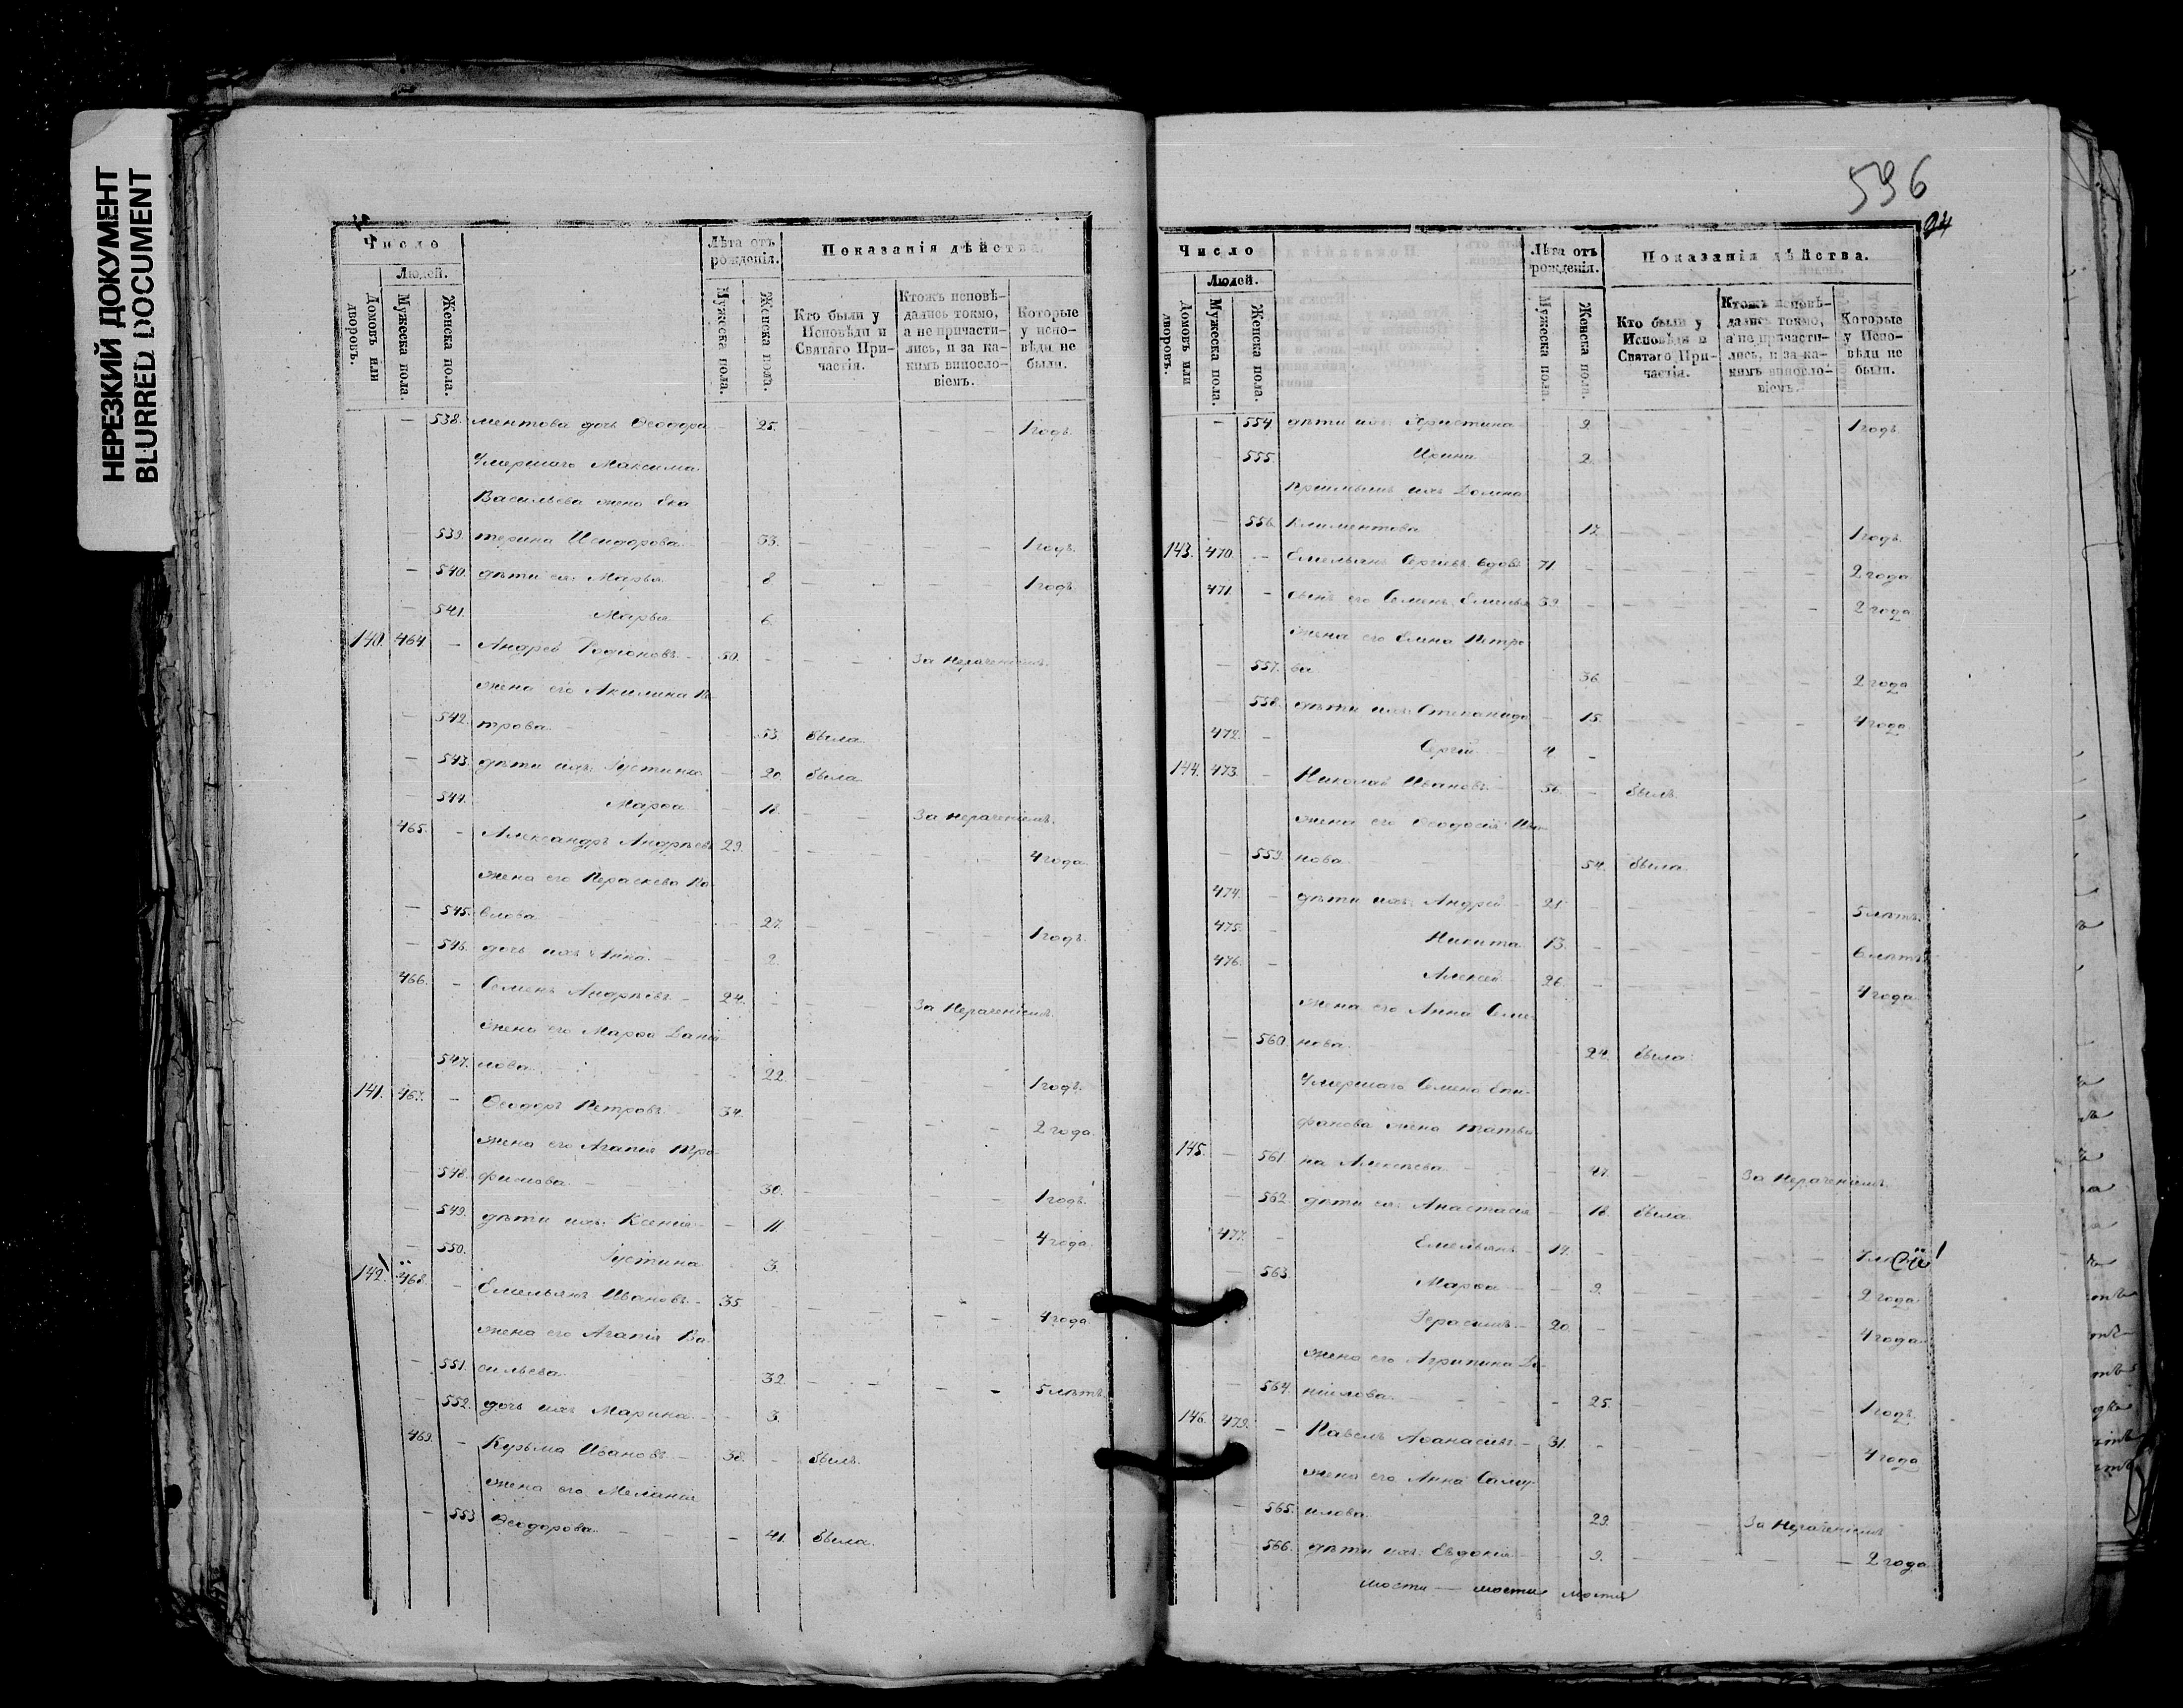 НЕРЕЗКИЙ ДОКУМЕНТ
BLURRED DOCUMENT
Число
Людей.
Домовъ или дворовъ.
Мужеска пола.
Женска пола.
Лѣта отъ рожденія.
Мужеска пола.
Женска пола.
Показанія дѣйства.
Кто были у Исповѣди и Святаго Причастія.
Ктожъ исповѣдались токмо, а не причастились, и за какимъ винословіемъ.
Которые у исповѣди не были.
— 538. ментова дочь Ѳеодора 25. — — — 1 годъ.
Умершаго Максима
Васильева жена Ека
— 539. терина Исидорова 33. — — 1 годъ.
— 540. дѣти ея: Марѳа 8 — — — 1 годъ.
— 541. Марья 6.
140. 464. — Андрей Родіоновъ 50. — — — За нераченіемъ.
жена его Акилина Пе-
— 542. трова 53. была
— 543. дѣти ихъ: Іустина — 20. была
— 544. Марѳа 18. — — За нераченіемъ.
465. — Александръ Андреевъ 29. — — — — 4 года.
жена его Параскева Па
— 545. влова 27. — — — — 1 годъ.
— 546. дочь ихъ Анна — 2.
466. — Семенъ Андреевъ — 24. — — — За нераченіемъ.
жена его Марѳа Даніи
547. лова 22. — — — — 1 годъ.
141. 467. — Ѳеодоръ Петровъ 34. — — — 2 года.
жена его Агапія Тро-
— 548. фимова — 30. — — — — 1 годъ.
— 549. дѣти ихъ: Ксенія — 11 — — — — 4 года.
— 550. Іустина 3.
142. 468. — Емельянъ Ивановъ — 35. — — — — 4 года.
жена его Агапія Ва
— 551. сильева 32. — — — — 5 лѣтъ.
— 552. дочь ихъ Марина — 3.
469. — Курьма Ивановъ — 38. — былъ.
жена его Меланія
— 553. Ѳеодорова — — 41. была.
596
24
Число
Людей.
Домовъ или дворовъ.
Мужеска пола.
Женска пола.
Лѣта отъ рожденія.
Мужеска пола.
Женска пола.
Показанія дѣйства.
Кто были у Исповѣди и Святаго Причастія.
Ктожъ исповѣдались токмо, а не причастились, и за какимъ винословіемъ.
Которые у Исповѣди не были.
— 554. дѣти ихъ: Христина 9. — — 1 годъ.
— 555. Ирина 2.
Пріимышъ ихъ Домна
— 556. Климентова — 17. — — — 1 годъ.
143. 470. — Емельянъ Сергіевъ вдовъ 71. — — — — 2 года
471. — сынъ его Семенъ Емелья 39. — — — — 2 года
жена его Елена Петро
— 557. ва 36. — — — 2 года
— 558. дѣти ихъ: Степанида — 15. — — — 4 года.
472. — Сергій — 4. —
144. 473. — Николай Ивановъ — 56. — былъ.
жена его Ѳеодосія Ива-
— 559. нова 54. была.
474. — дѣти ихъ: Андрей — 21. — — — — 5 лѣтъ.
475. — Никита 13. — — — — 6 лѣтъ.
476. — Алексей — 26. — — — — 4 года
жена его Анна Семе-
— 560. нова. 24. была.
Умершаго Семена Епи-
фанова жена Татья
145. — 561. на Алексѣева — 47. — — За нераченіемъ.
— 562. дѣти ея: Анастасія — 18. была.
477. — Емельянъ — 17. —
— 563. Марѳа — 9. — — — — 2 года
Герасимъ — 20. — — — — 4 года.
жена его Агрипина Да-
— 564. ніилова — — — 25. — — — 1 годъ.
146. 479. — Павелъ Аѳанасіевъ — 31. — — — — 4 года
жена его Анна Саму-
— 565. илова 29. — — За нераченіемъ
— 566. дѣти ихъ: Евдокія — 9. — — — — 2 года.